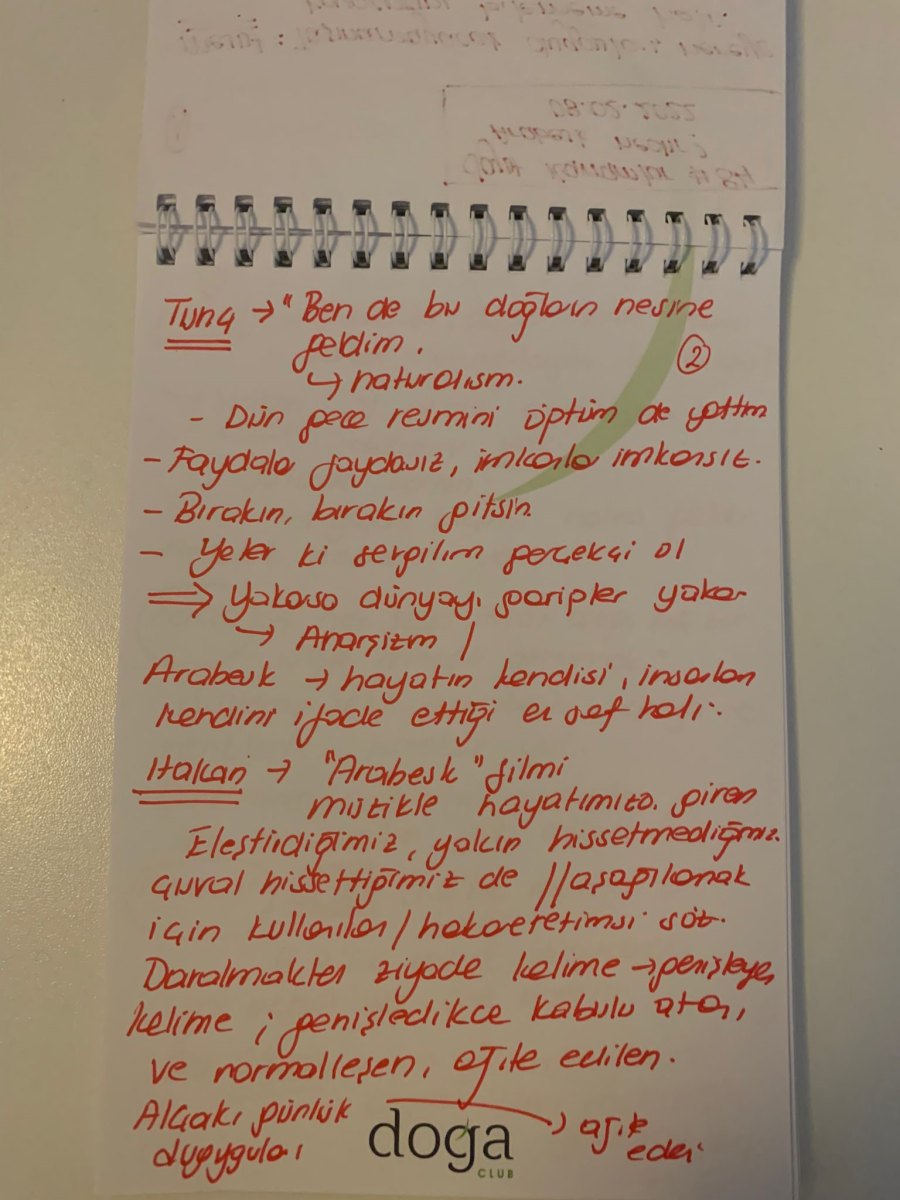 Tunç → "Ben de bu dağların nesine
geldim.
②
↳ naturalism.
- Dün gece resmini öptüm de yattım
- Faydala faydasız, imkanla imkansız.
- Bırakın, bırakın gitsin.
- Yeter ki sevgilim gerçekçi ol
⇒ Yakarsa dünyayı garipler yakar
→ Anarşizm /
Arabesk → hayatın kendisi, insanların
kendini ifade ettiği en saf hali.
Hakan → "Arabesk" filmi
müzikle hayatımıza giren
Eleştirdiğimiz, yakın hissetmediğimiz.
hissettiğimiz de // aşağılamak
için kullanılan / hakaretimsi söz.
Daralmaktan ziyade kelime → genişleyen
kelime ; genişledikçe kabulu artan,
ve normalleşen, edilen.
günlük
duyguları
→
eden
doga
CLUB
09.02.2022
Arabesk nedir?